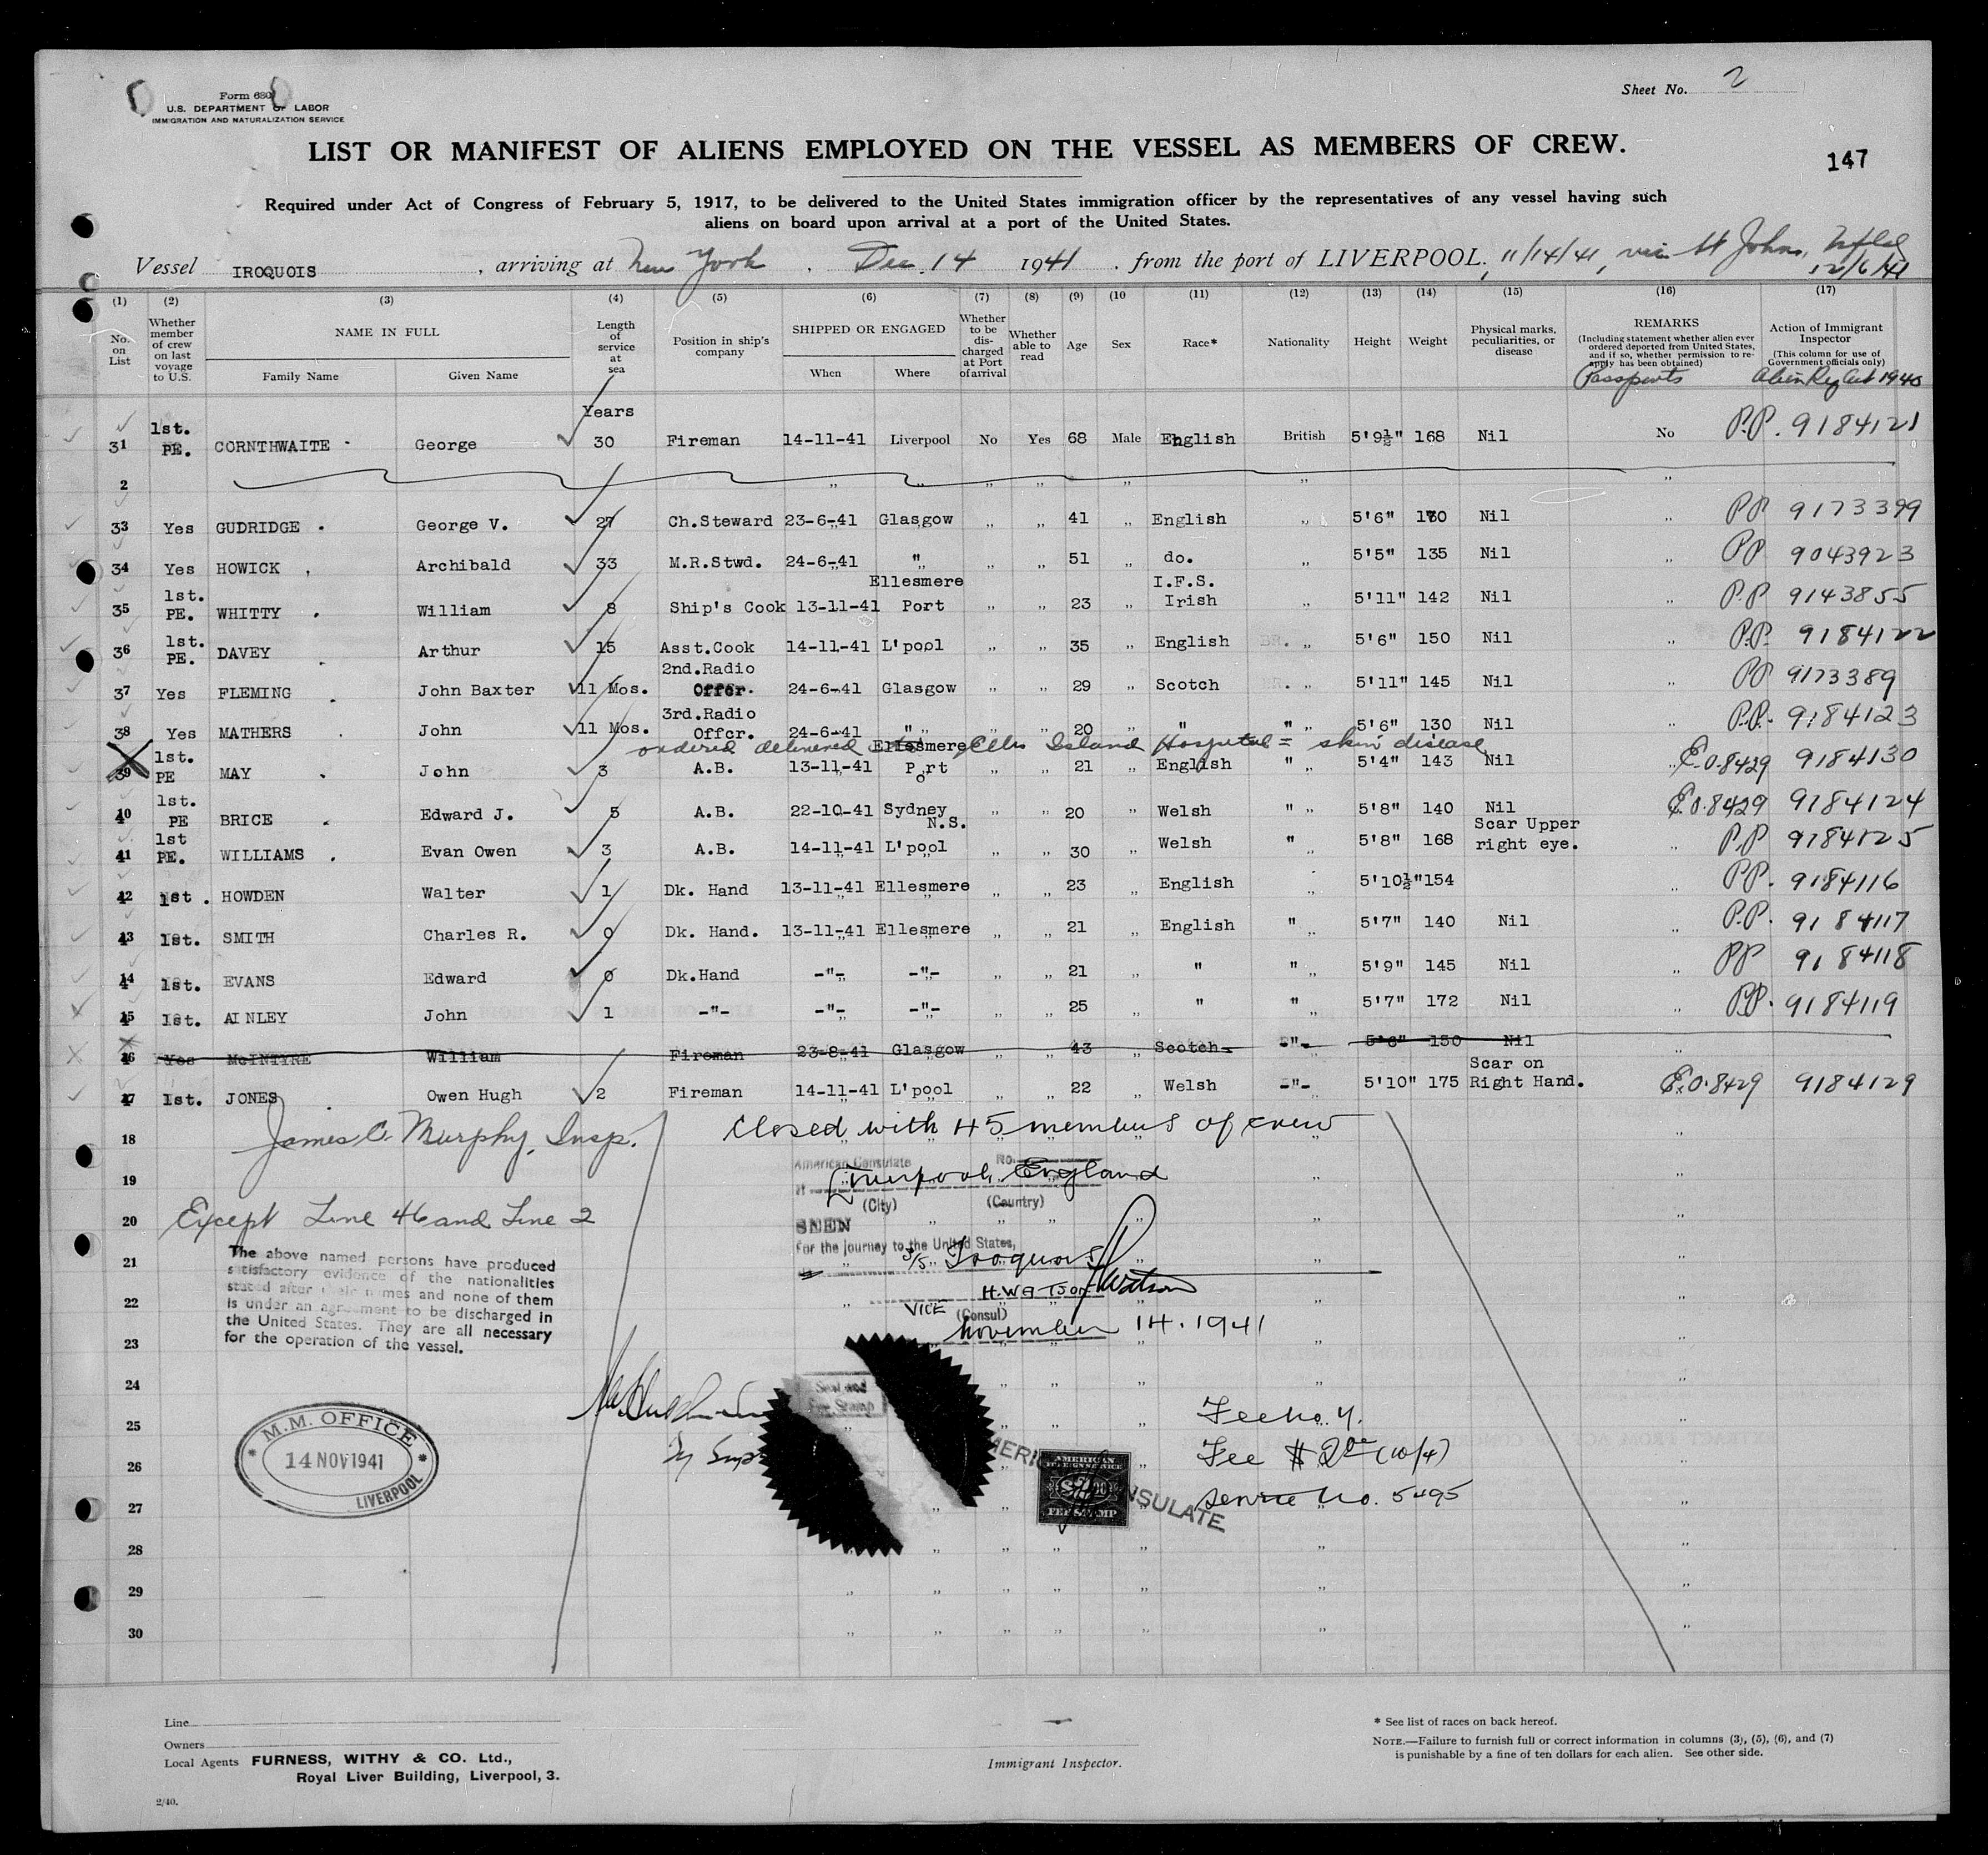 Form 680
U.S. DEPARTMENT OF LABOR
IMMIGRATION AND NATURALIZATION SERVICE
Sheet No. 2
LIST OR MANIFEST OF ALIENS EMPLOYED ON THE VESSEL AS MEMBERS OF CREW.
147
Required under Act of Congress of February 5, 1917, to be delivered to the United States immigration officer by the representatives of any vessel having such
aliens on board upon arrival at a port of the United States.
Vessel IROQUOIS, arriving at New York, Dec. 14 1941, from the port of LIVERPOOL, 11/14/41, via St Johns, Nfld 12/6/41
(1) (2) (3) (4) (5) (6) (7) (8) (9) (10 (11) (12) (13) (14) (15) (16) (17)
No. on List
Whether member of crew on last voyage to U.S.
NAME IN FULL
Family Name Given Name
Length of service at sea
Position in ship's company
SHIPPED OR ENGAGED
When Where
Whether to be discharged at Port of arrival
Whether able to read
Age
Sex
Race*
Nationality
Height
Weight
Physical marks, peculiarities, or disease
REMARKS
(Including statement whether alien ever ordered deported from United States, and if so, whether permission to reapply has been obtained)
Passports
Action of Immigrant Inspector
(This column for use of Government officials only)
Alien Reg Act 1940
Years
31 1st. PE. CORNTHWAITE George 30 Fireman 14-11-41 Liverpool No Yes 68 Male English British 5'9½" 168 Nil No P.P. 9184121
2 " " " " " " "
33 Yes GUDRIDGE George V. 27 Ch.Steward 23-6-41 Glasgow " " 41 " English " 5'6" 130 Nil " PP 9173399
34 Yes HOWICK Archibald 33 M.R.Stwd. 24-6-41 " " " 51 " do. " 5'5" 135 Nil " PP 9043923
35 1st. PE. WHITTY William 8 Ship's Cook 13-11-41 Ellesmere Port " " 23 " I.F.S. Irish 5'11" 142 Nil " P.P 9143855
36 1st. PE. DAVEY Arthur 15 Asst.Cook 14-11-41 L'pool " " 35 " English " 5'6" 150 Nil " P.P. 9184122
37 Yes FLEMING John Baxter 11 Mos. 2nd.Radio Offcr. 24-6-41 Glasgow " " 29 " Scotch " 5'11" 145 Nil " PP 9173389
38 Yes MATHERS John 11 Mos. 3rd.Radio Offcr. 24-6-41 " " " 20 " " " 5'6" 130 Nil " P.P. 9184123
ordered delivered to Ellis Island Hospital = skin disease
39 1st. PE MAY John 3 A.B. 13-11-41 Ellesmere Port " " 21 " English " 5'4" 143 Nil " E.O.8429 9184130
40 1st. PE BRICE Edward J. 5 A.B. 22-10-41 Sydney N.S. " " 20 " Welsh " 5'8" 140 Nil E.O.8429 9184124
41 1st PE. WILLIAMS Evan Owen 3 A.B. 14-11-41 L'pool " " 30 " Welsh " 5'8" 168 Scar Upper right eye. " P.P 9184125
42 1st. HOWDEN Walter 1 Dk. Hand 13-11-41 Ellesmere " " 23 " English " 5'10½" 154 " PP. 9184116
43 1st. SMITH Charles R. 0 Dk. Hand. 13-11-41 Ellesmere " " 21 " English " 5'7" 140 Nil " P.P. 9184117
44 1st. EVANS Edward 0 Dk.Hand -"- -"- " " 21 " " " 5'9" 145 Nil " PP 9184118
45 1st. AINLEY John 1 -"- -"- -"- " " 25 " " " 5'7" 172 Nil " PP. 9184119
46 Yes McINTYRE William Fireman 23-8-41 Glasgow " " 43 " Scotch -"- 5'6" 150 Nil "
47 1st. JONES Owen Hugh 2 Fireman 14-11-41 L'pool " " 22 " Welsh -"- 5'10" 175 Scar on Right Hand. E.O.8429 9184129
18 James C. Murphy, Insp. Closed with 45 members of crew
19 American Consulate No.
at Liverpool, England
(City) (Country)
20 Except Line 46 and Line 2
SEEN
21 For the journey to the United States,
S/S Iroquois
The above named persons have produced
satisfactory evidence of the nationalities
stated after their names and none of them
is under an agreement to be discharged in
the United States. They are all necessary
for the operation of the vessel.
22 H. Watson Watson
VICE (Consul)
23 November 14. 1941
24 Seal and
Fee Stamp
25 Fee No. 4.
26 Fee $2 00 (10/4)
27 Service No. 5495
M.M. OFFICE
14 NOV 1941
LIVERPOOL
AMERICAN CONSULATE
AMERICAN
FOREIGN SERVICE
FEE STAMP
28
29
30
Line
Owners
Local Agents FURNESS, WITHY & CO. Ltd.,
Royal Liver Building, Liverpool, 3.
2/40.
Immigrant Inspector.
* See list of races on back hereof.
NOTE.—Failure to furnish full or correct information in columns (3), (5), (6), and (7)
is punishable by a fine of ten dollars for each alien. See other side.